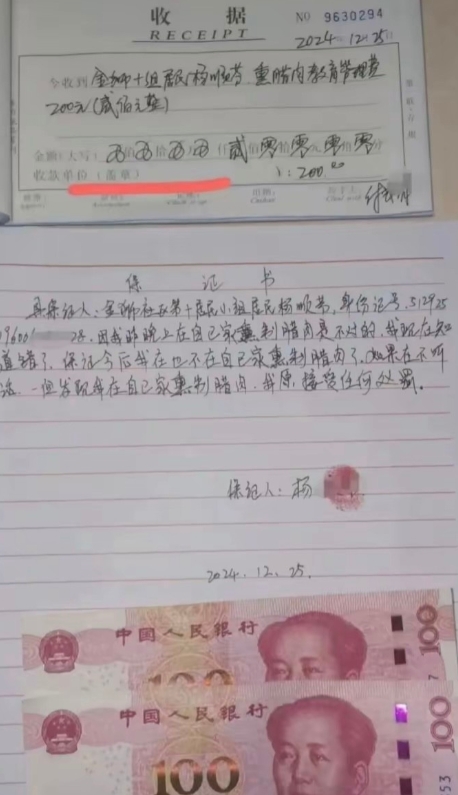 收 据
RECEIPT
№ 9630294
2024.12.25
今收到 金狮十组居民杨顺书 熏腊肉教育管理费
200元(贰佰元整)
金额(大写) 贰 佰 零 拾 零 元 零 角 零 分
收款单位(盖章)
¥:200
保 证 书
具保证人:金狮社区第十居民小组居民杨顺书,身份证号,512925
1960 28,因我昨晚上在自己家熏制腊肉是不对的,我现在知
道错了,保证今后我在也不在自己家熏制腊肉了,如果在不听
话,一但发现我在自己家熏制腊肉,我愿接受任何处罚。
保证人:杨
2024.12.25.
中国人民银行
100
100
中国人民银行
100
100